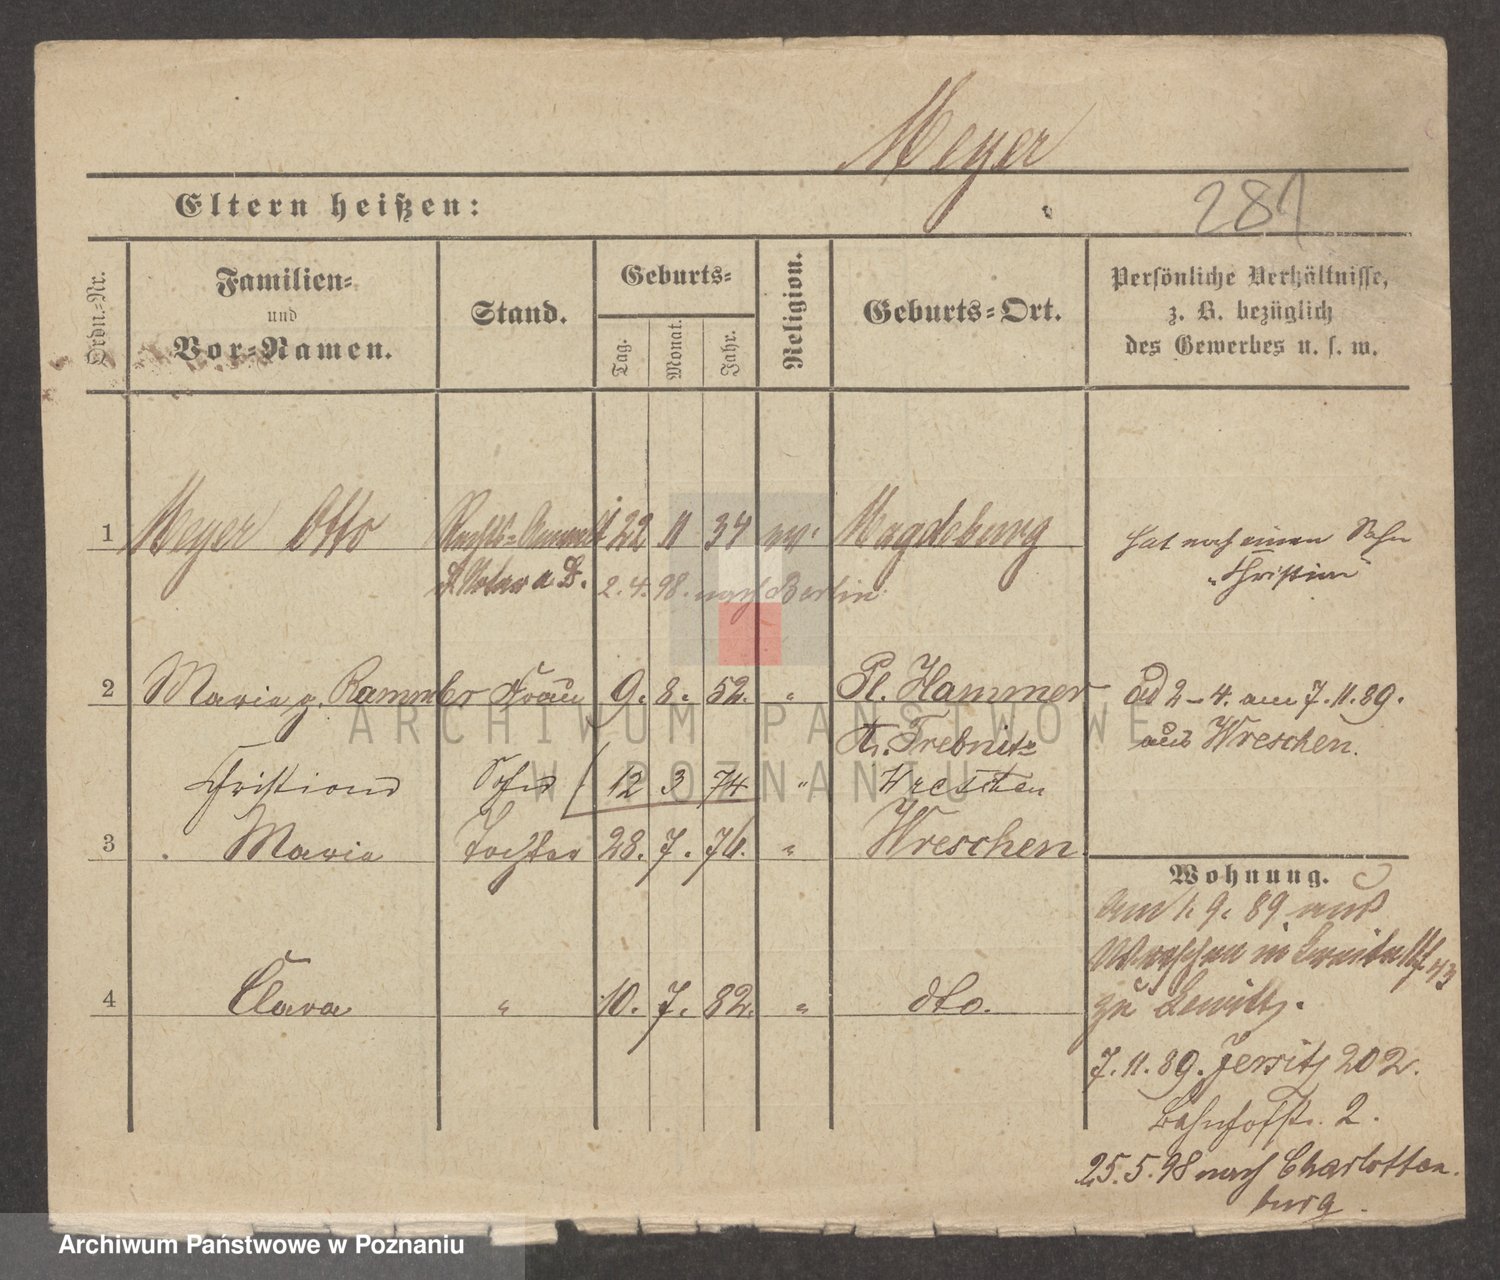 Meyer
Eltern heißen:
281
Ordn.-Nr.
Familien-
und
Vor-Namen.
Stand.
Geburts-
Tag.
Monat.
Jahr.
Religion.
Geburts-Ort.
Persönliche Verhältnisse,
z. B. bezüglich
des Gewerbes u. s. w.
1 Meyer Otto Rechts-Anwalt 22 11 34 ev. Magdeburg hat noch einen Sohn
& Notar a. D. 2. 4. 98. nach Berlin. "Christian"
2 Marie g. Frau 9. 8. 52. " Pl. Hammer ad 2-4. am 7. 11. 89.
Kr. Trebnitz aus Wreschen.
Christian Sohn 12 3 74 " Wreschen
3 Maria Tochter 28. 7. 76. " Wreschen
Wohnung.
Am 1. 9. 89 aus
Wreschen in 43
4 Clara " 10. 7. 82. " dto. zu
7. 11. 89. Jersitz 202.
Bahnhofstr. 2.
25. 5. 98 nach Charlotten
burg.
ARCHIWUM PAŃSTWOWE
W POZNANIU
Archiwum Państwowe w Poznaniu